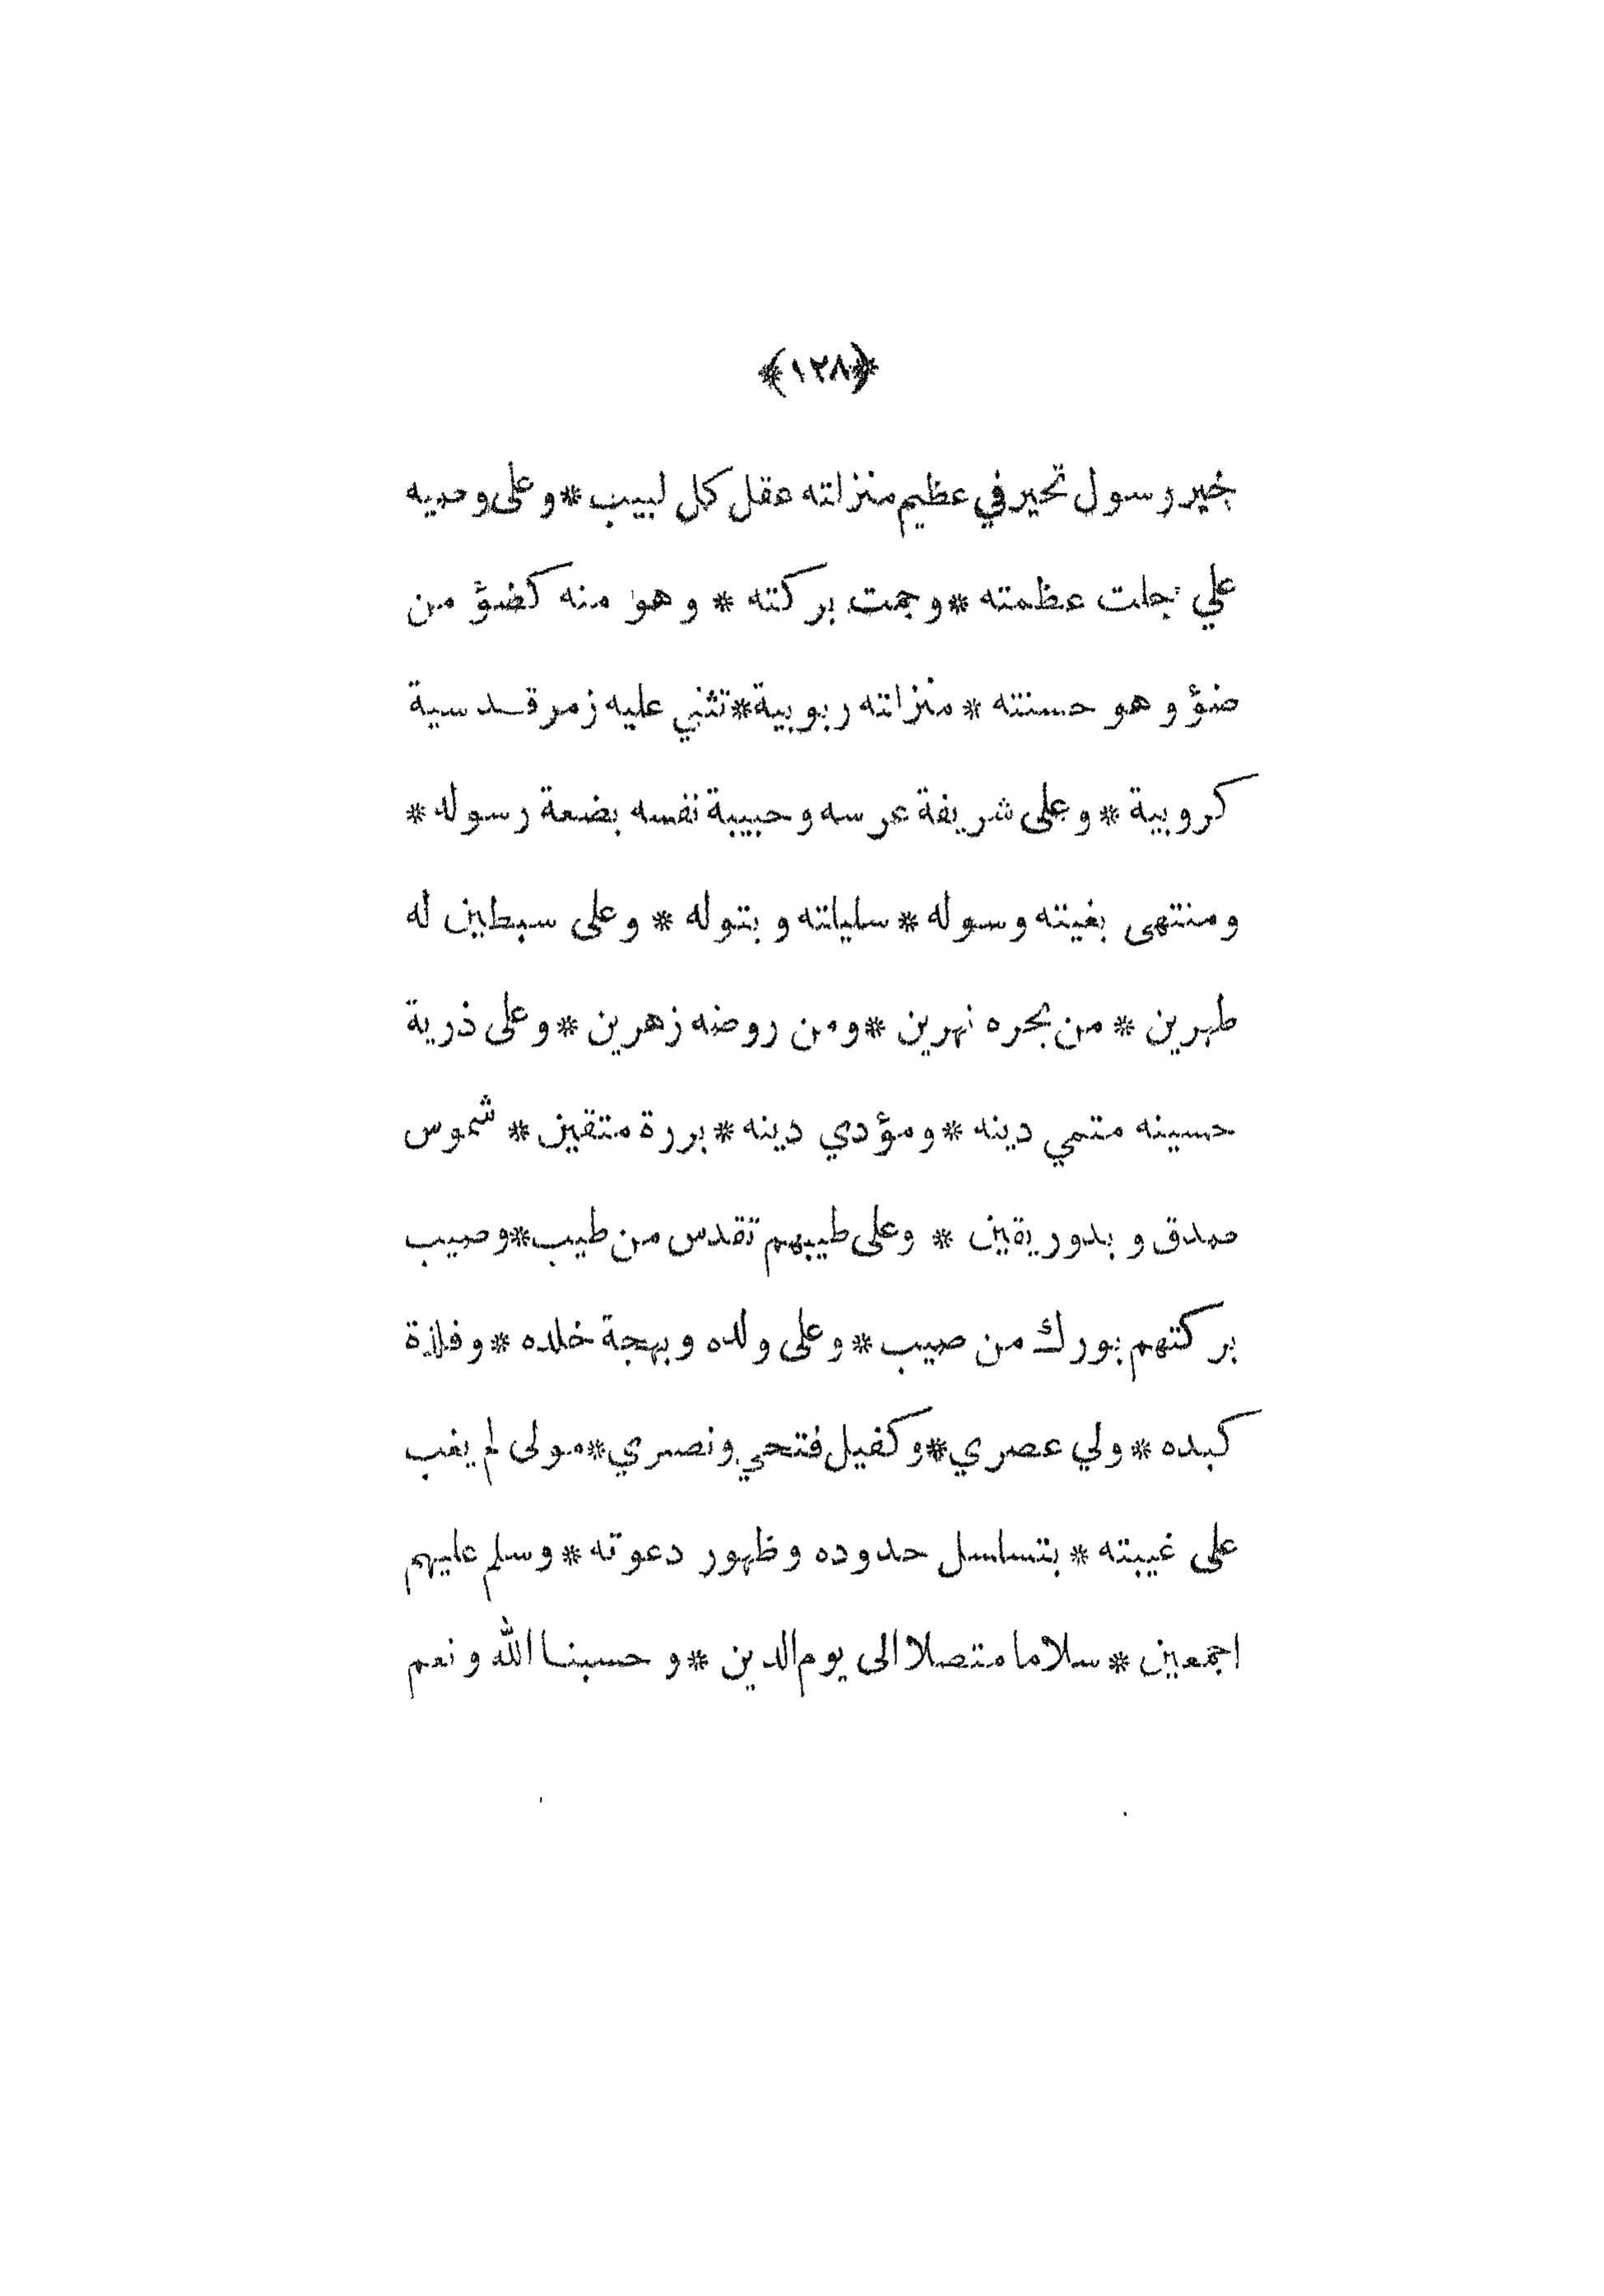 ﴿١٢٨﴾
خير رسول تحير في عظيم منزلته عقل كل لبيب * وعلى وصيه
علي جلت عظمته * وجمت بركته * وهو منه كضؤ من
ضؤ وهو حسنته * منزلته ربوبية * تثني عليه زمر قدسية
كروبية * وعلى شريفة عرسه وحبيبة نفسه بضعة رسوله *
ومنتهى بغيته وسوله * سليلته وبتوله * وعلى سبطين له
طهرين * من بحره نهرين * ومن روضه زهرين * وعلى ذرية
حسينه متمي دينه * ومؤدي دينه * بررة متقين * شموس
صدق وبدور يقين * وعلى طيبهم تقدس من طيب * وصيب
بركتهم بورك من صيب * وعلى ولده وبهجة خلده * وفلذة
كبده * ولي عصري * وكفيل فتحي ونصري * مولى لم يغب
على غيبته * بتسلسل حدوده وظهور دعوته * وسلم عليهم
اجمعين * سلاما متصلا الى يوم الدين * وحسبنا الله ونعم